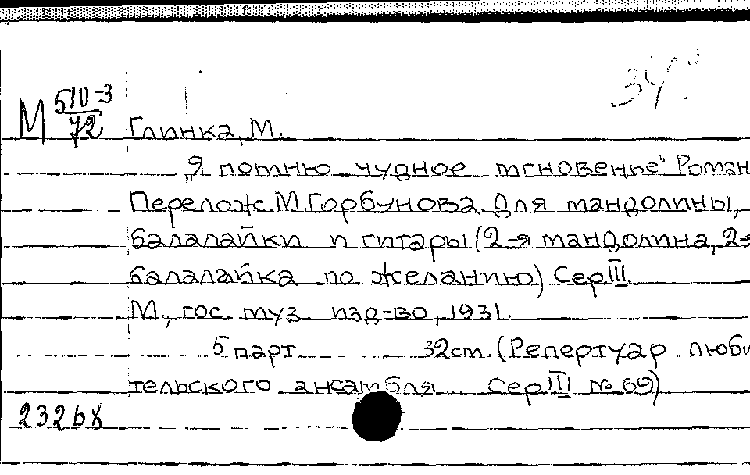 М 510-3
72
Глинка, М.
„Я помню чудное мгновенье" Роман
Перелож. М. Горбунова. Для мандолины,
балалайки и гитары (2-я мандолина, 2-я
балалайка по желанию) Сер. III
М., гос. муз. изд-во, 1931.
5 парт. 32 ст. (Репертуар люби
тельского ансамбля. Сер. III № 69)